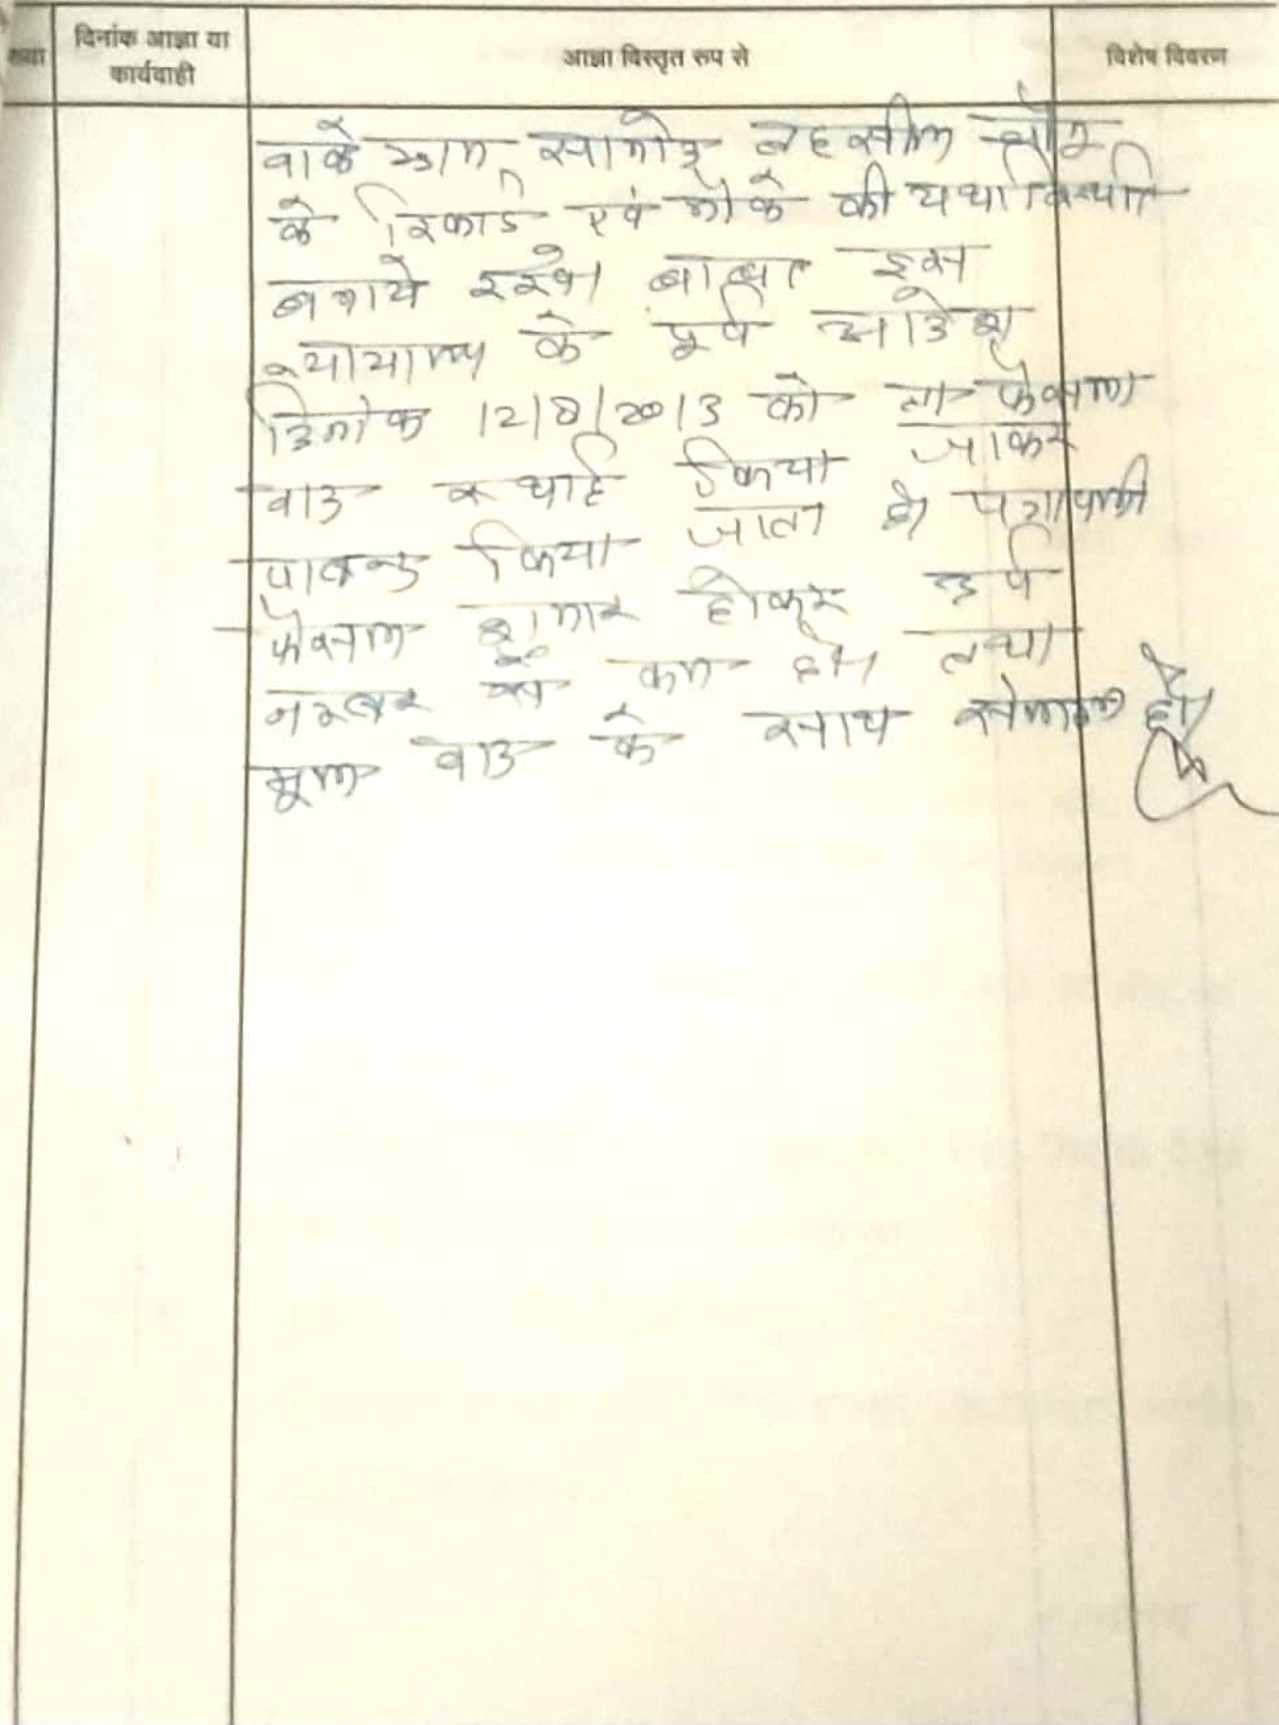 दिनांक आज्ञा या
कार्यवाही
आज्ञा विस्तृत रूप से
विशेष विवरण
वाके ग्राम सामोद तहसील चौमू
के रिकार्ड एवं मौके की यथास्थिति
बनाये रखे।
इस
न्यायालय के पूर्व आदेश
दिनांक 12/8/2013 को ता फैसला
वाद स्थाई किया जाकर
पाबन्द किया जाता है। पत्रावली
फैसल शुमार होकर दर्ज
नम्बर से कम हो। तथा
मूल वाद के साथ संलग्न हो।